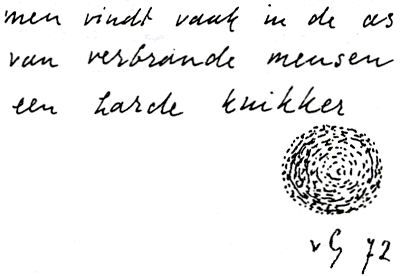 men vindt vaak in de as
van verbrande mensen
een harde knikker
vG 72